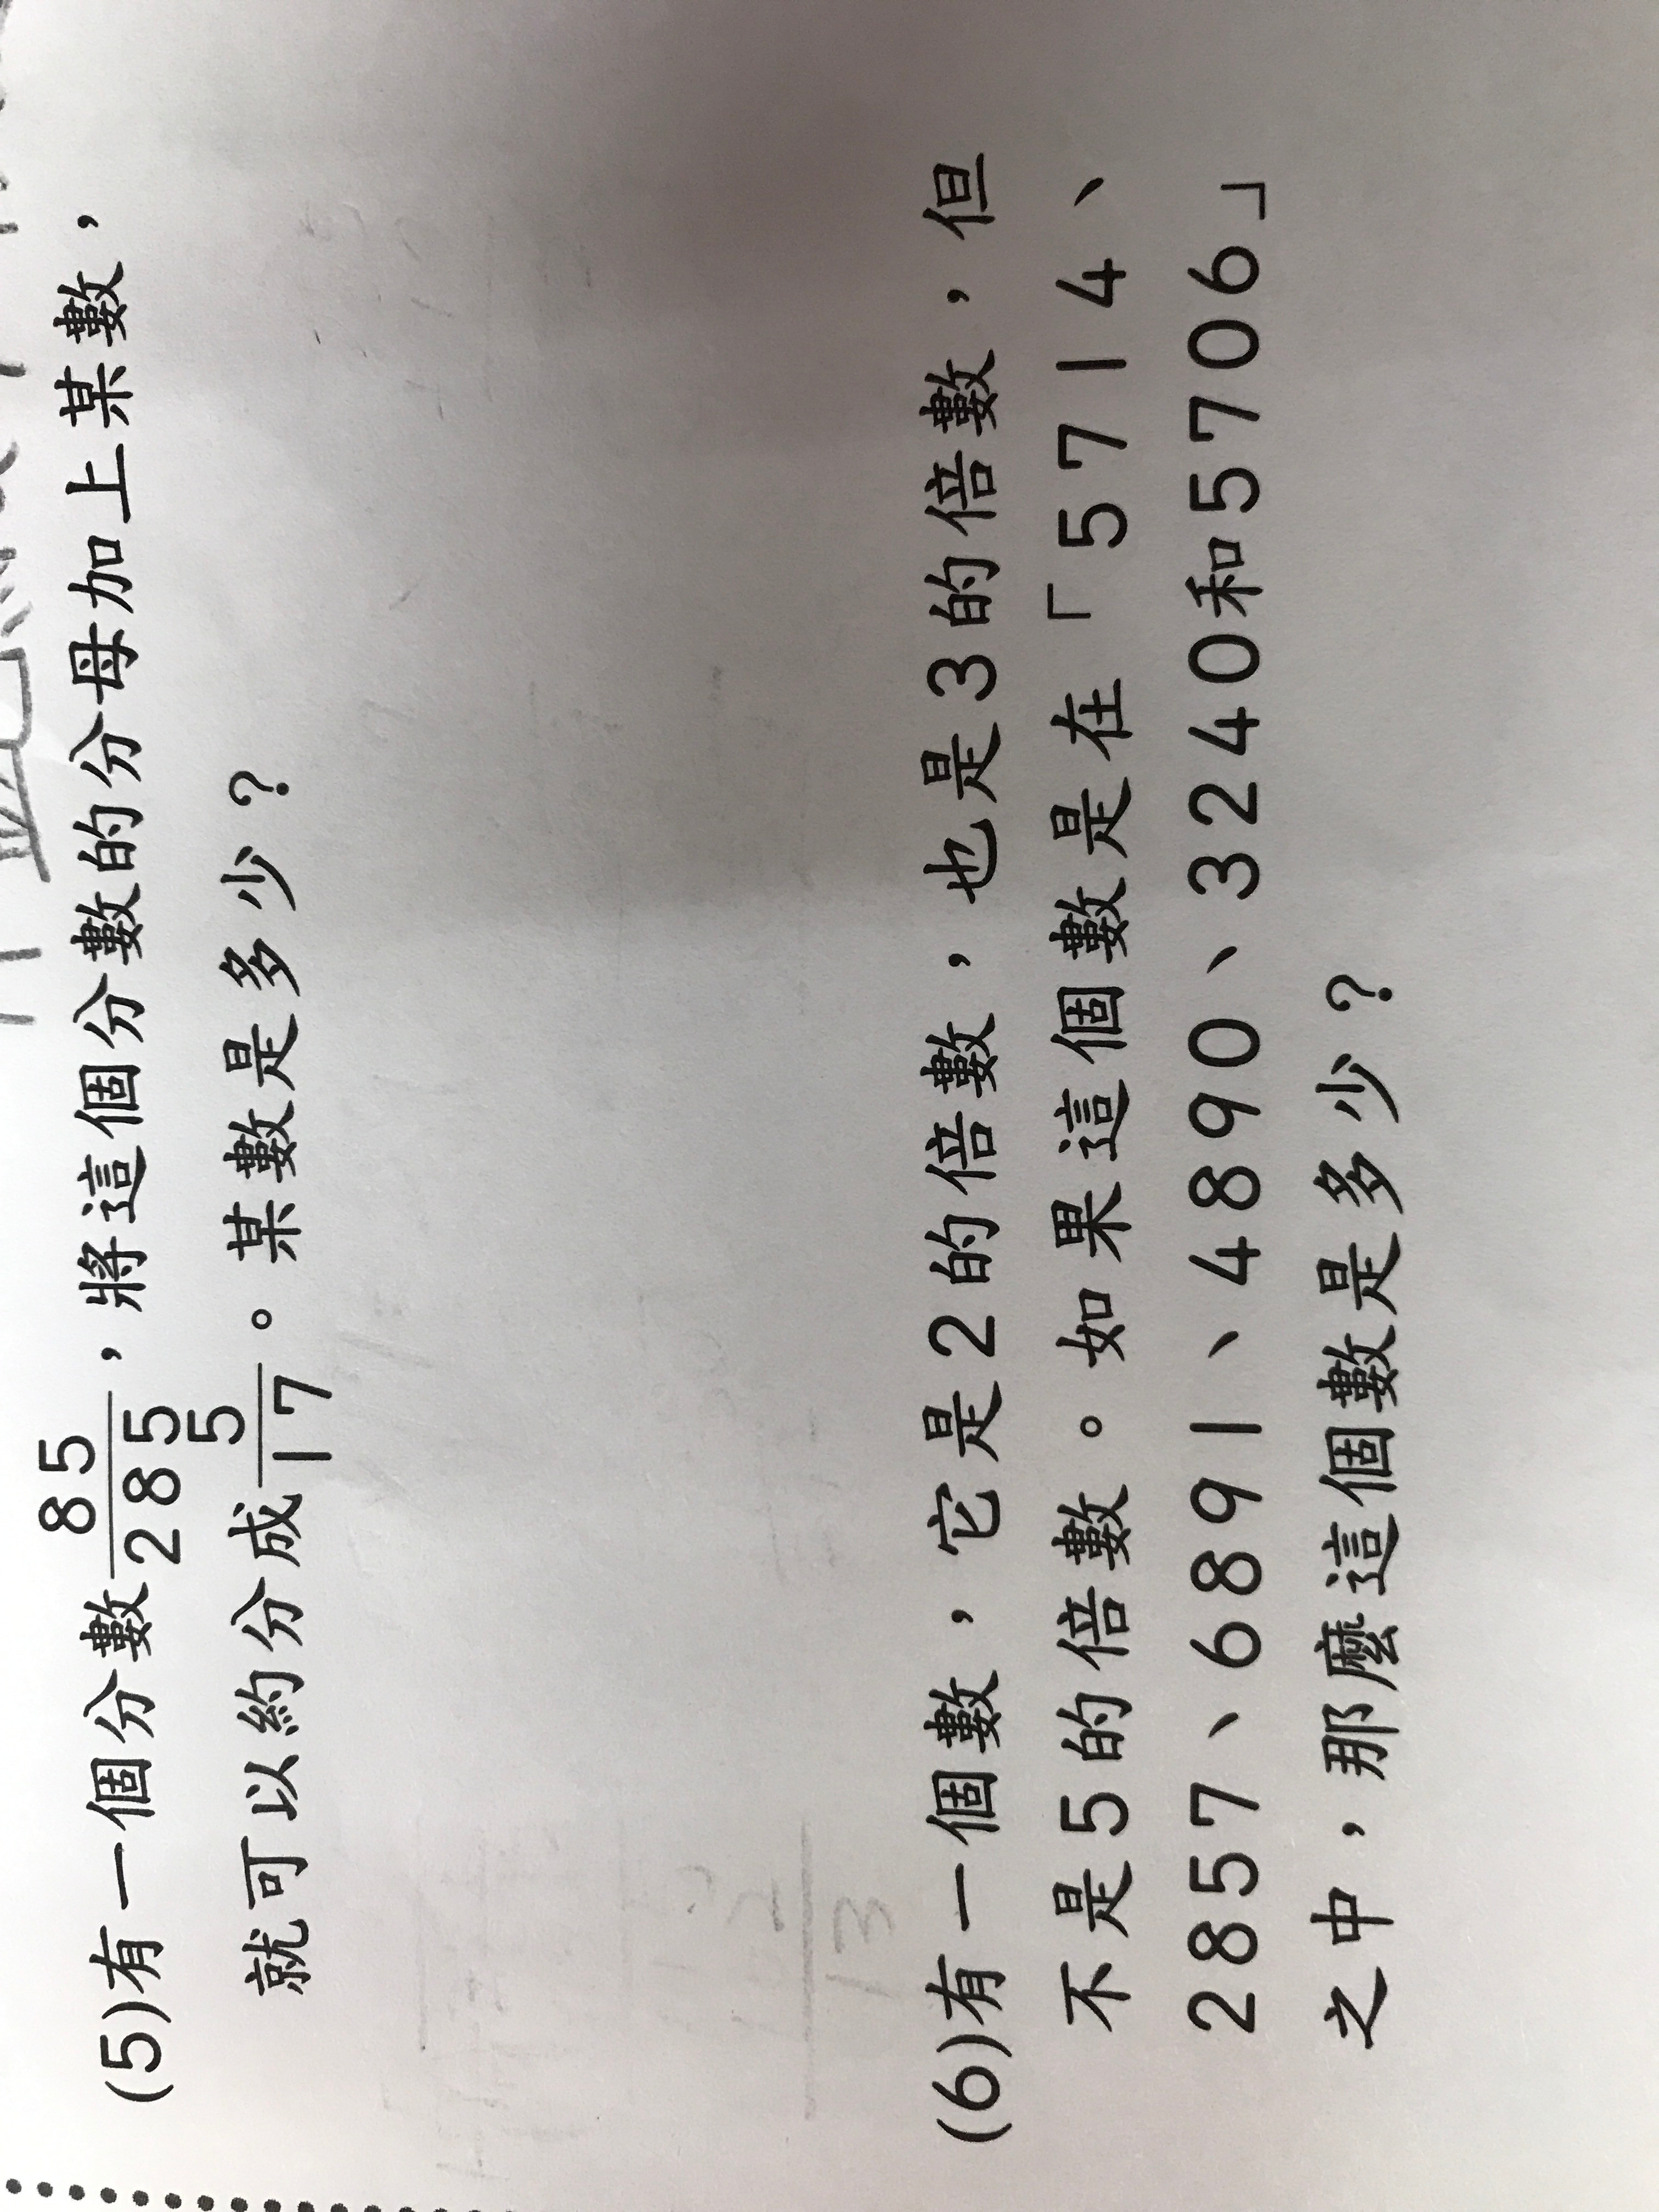 (5)有一個分數85/285，將這個分數的分母加上某數，
就可以約分成5/17。某數是多少？
(6)有一個數，它是2的倍數，也是3的倍數，但
不是5的倍數。如果這個數是在「5714、
2857、6891、4890、3240和5706」
之中，那麼這個數是多少？